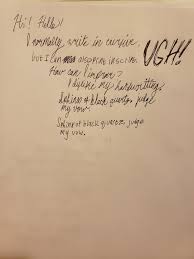 Hi! Hello!
I normally write in cursive,
but I can
UGH!!
How can I improve?
I dislike my handwriting
Sphinx of black quartz, judge
my vow.
Sphinx of black quartz judge
my vow.